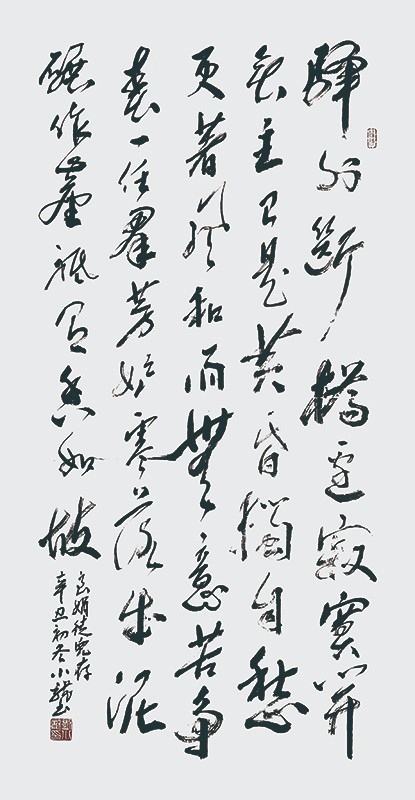 驛外斷橋邊寂寞開
無主已是黄昏獨自愁
更著風和雨無意苦争
春一任羣芳妒零落成泥
碾作塵祇有香如故
娟徒兒存
辛丑初冬小